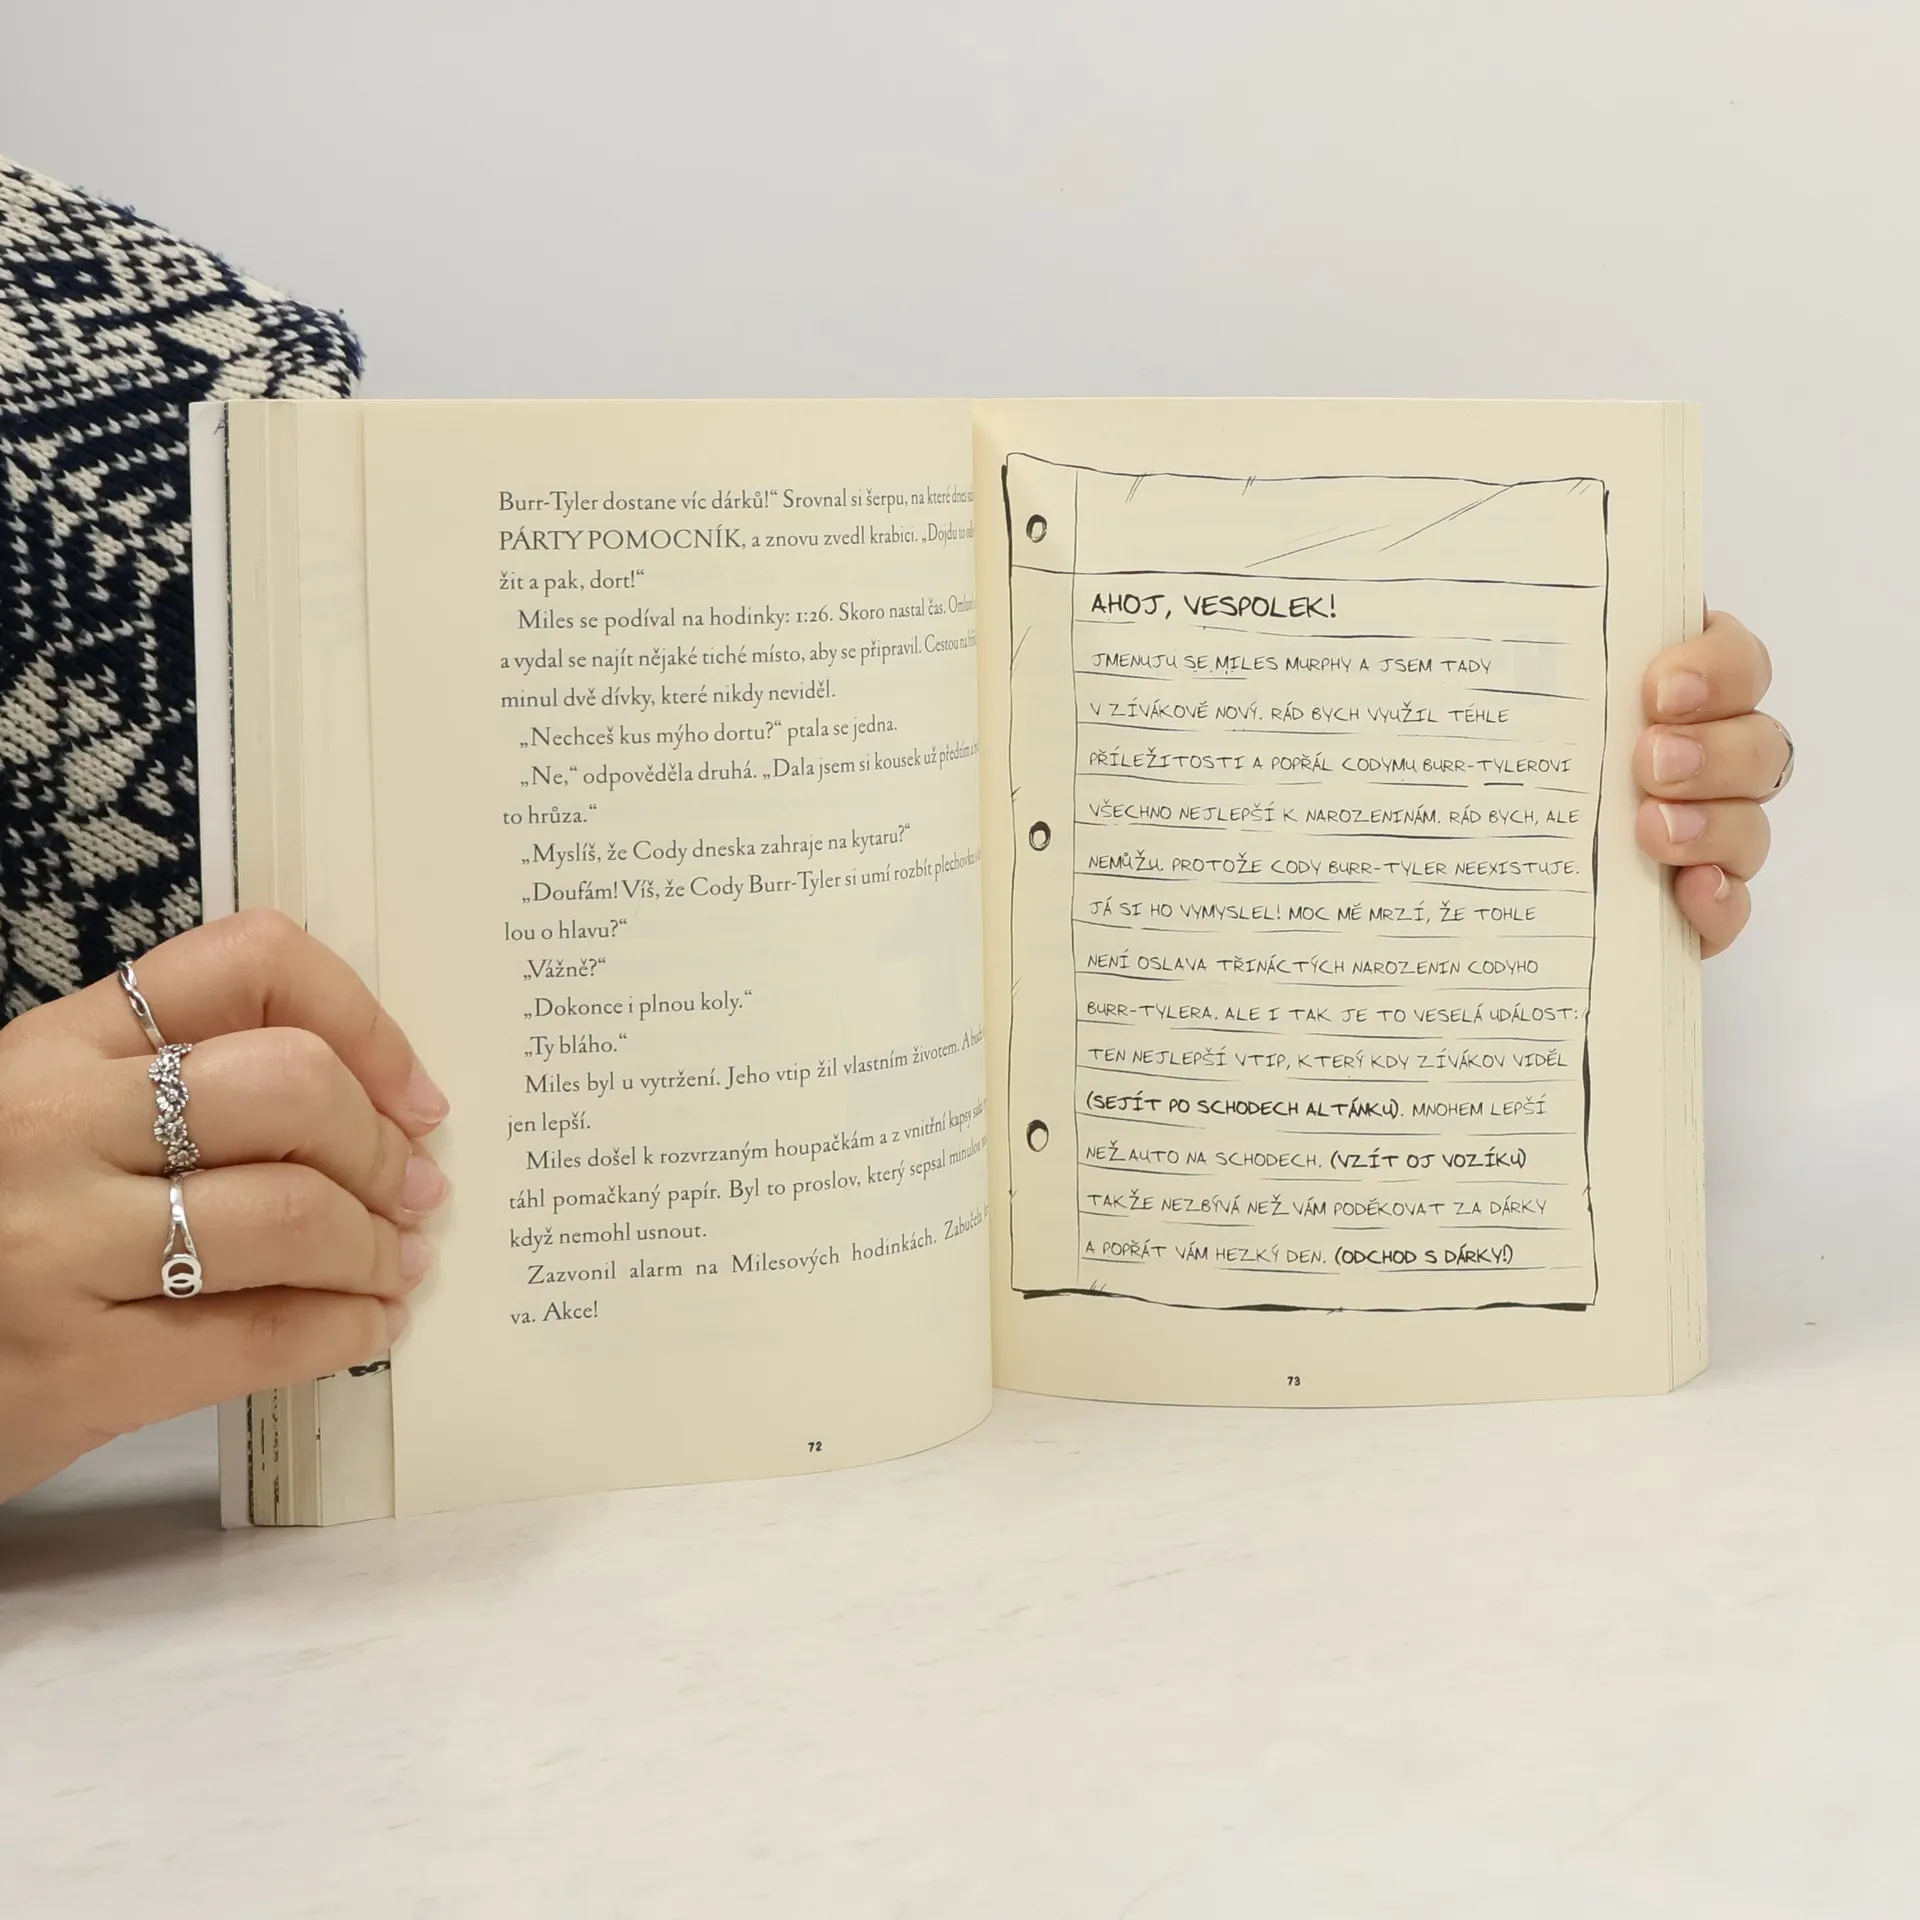 Burr-Tyler dostane víc dárků!“ Srovnal si šerpu, na které dnes
PÁRTY POMOCNÍK, a znovu zvedl krabici. „Dojdu to
žit a pak, dort!“
Miles se podíval na hodinky: 1:26. Skoro nastal čas.
a vydal se najít nějaké tiché místo, aby se připravil. Cestou na
minul dvě dívky, které nikdy neviděl.
„Nechceš kus mýho dortu?“ ptala se jedna.
„Ne,“ odpověděla druhá. „Dala jsem si kousek už předtím
to hrůza.“
„Myslíš, že Cody dneska zahraje na kytaru?“
„Doufám! Víš, že Cody Burr-Tyler si umí rozbít plechovku
lou o hlavu?“
„Vážně?“
„Dokonce i plnou koly.“
„Ty bláho.“
Miles byl u vytržení. Jeho vtip žil vlastním životem. A
jen lepší.
Miles došel k rozvrzaným houpačkám a z vnitřní kapsy
táhl pomačkaný papír. Byl to proslov, který sepsal minulou
když nemohl usnout.
Zazvonil alarm na Milesových hodinkách. Zabučela
va. Akce!
72
AHOJ, VESPOLEK!
JMENUJU SE MILES MURPHY A JSEM TADY
V ZÍVÁKOVĚ NOVÝ. RÁD BYCH VYUŽIL TÉHLE
PŘÍLEŽITOSTI A POPŘÁL CODYMU BURR-TYLEROVI
VŠECHNO NEJLEPŠÍ K NAROZENINÁM. RÁD BYCH, ALE
NEMŮŽU. PROTOŽE CODY BURR-TYLER NEEXISTUJE.
JÁ SI HO VYMYSLEL! MOC MĚ MRZÍ, ŽE TOHLE
NENÍ OSLAVA TŘINÁCTÝCH NAROZENIN CODYHO
BURR-TYLERA. ALE I TAK JE TO VESELÁ UDÁLOST:
TEN NEJLEPŠÍ VTIP, KTERÝ KDY ZÍVÁKOV VIDĚL
(SEJÍT PO SCHODECH ALTÁNKU). MNOHEM LEPŠÍ
NEŽ AUTO NA SCHODECH. (VZÍT OJ VOZÍKU)
TAKŽE NEZBÝVÁ NEŽ VÁM PODĚKOVAT ZA DÁRKY
A POPŘÁT VÁM HEZKÝ DEN. (ODCHOD S DÁRKY!)
73